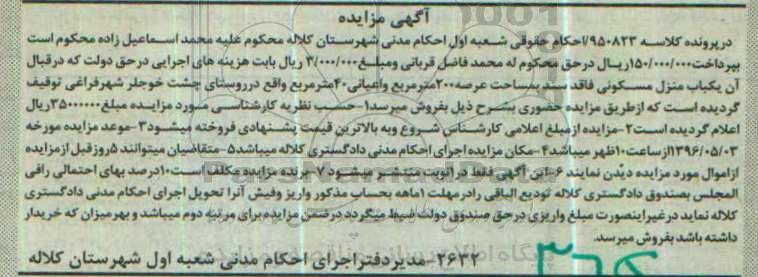 آگهی مزایده
درپرونده کلاسه ۹۵۰۸۲۳/احکام حقوقی شعبه اول احکام مدنی شهرستان کلاله محکوم علیه محمد اسماعیل زاده محکوم است
بپرداخت۱۵۰/۰۰۰/۰۰۰ریال درحق محکوم له محمد فاضل قربانی ومبلغ۳/۰۰۰/۰۰۰ ریال بابت هزینه های اجرایی درحق دولت که درقبال
آن یکباب منزل مسکونی فاقد سند بمساحت عرصه۲۰۰مترمربع واعیانی۴۰مترمربع واقع درروستای چشت خوجلر شهرفراغی توقیف
گردیده است که ازطریق مزایده حضوری بشرح ذیل بفروش میرسد۱-حسب نظریه کارشناسی مورد مزایده مبلغ۳۵۰۰۰۰۰۰ریال
اعلام گردیده است۲-مزایده ازمبلغ اعلامی کارشناس شروع وبه بالاترین قیمت پشنهادی فروخته میشود۳-موعد مزایده مورخه
۱۳۹۶/۰۵/۰۳ازساعت۱۰ظهر میباشد۴-مکان مزایده اجرای احکام مدنی دادگستری کلاله میباشد۵-متقاضیان میتوانند۵روزقبل ازمزایده
ازاموال مورد مزایده دیدن نمایند۶-این آگهی فقط در۱نوبت منتشر میشود۷-برنده مزایده مکلف است۱۰درصد بهای احتمالی رافی
المجلس بصندوق دادگستری کلاله تودیع الباقی رادرمهلت ۱ماهه بحساب مذکور واریز وفیش آنرا تحویل اجرای احکام مدنی دادگستری
کلاله نماید درغیراینصورت مبلغ واریزی درحق صندوق دولت ضبط میگردد درضمن مزایده برای مرتبه دوم میباشد و بهرمیزان که خریدار
داشته باشد بفروش میرسد.
۲۶۳۲-مدیردفتراجرای احکام مدنی شعبه اول شهرستان کلاله